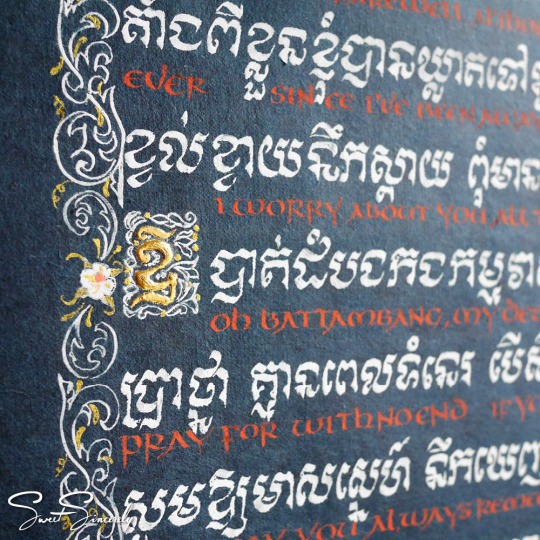 FAREWELL, ALTHO
តាំងពីខ្លួនខ្ញុំបានឃ្លាតទៅ
EVER SINCE I'VE BEEN AWAY
ខ្វល់ខ្វាយនឹកស្តាយ ពុំមាន
I WORRY ABOUT YOU ALL T
ឱ បាត់ដំបងកងកម្មវា
Oh BATTAMBANG, MY DE
ប្រាថ្នា គ្មានពេលទំនេរ បើ
PRAY FOR WITH NO END IF Y
សូមឱ្យមាសស្នេហ៍ នឹកឃើញ
YOU ALWAYS REM
Sweet Sincerely